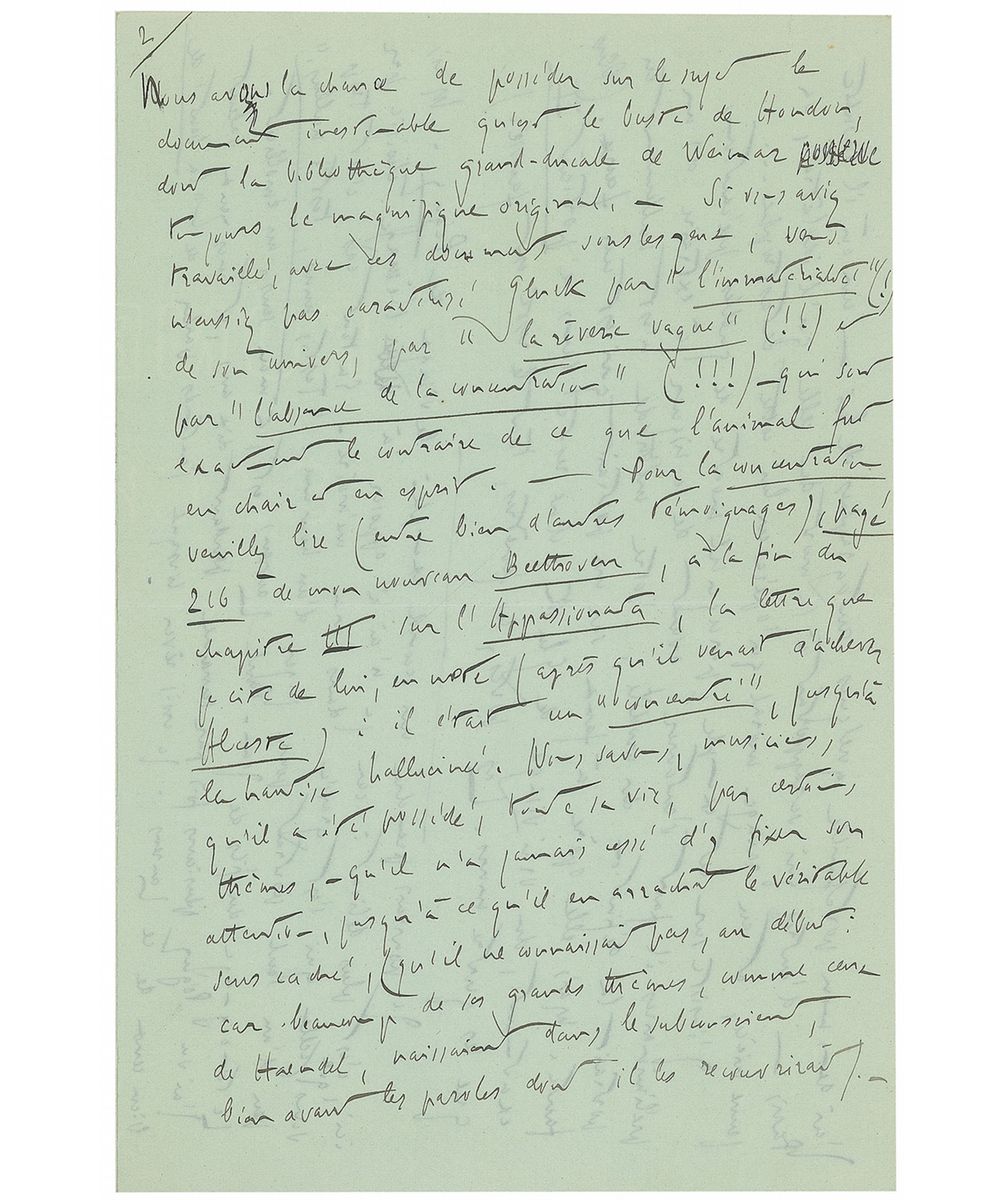 2
Nous avons la chance de posséder sur le sujet le
document inestimable qu'est le buste de Houdon,
dont la bibliothèque grand-ducale de Weimar possède
toujours le magnifique original. — Si vous aviez
travaillé, avec ces documents sous les yeux, vous
n'eussiez pas caractérisé Gluck par "l'immatérialité" (!)
de son univers, par "la rêverie vague" (!!) et
par "l'absence de la concentration" (!!!) — qui sont
exactement le contraire de ce que l'animal fut
en chair et en esprit. — Pour la concentration
veuillez lire (entre bien d'autres témoignages), page
216 de mon nouveau Beethoven, à la fin du
chapitre III sur l'Appassionata, la lettre que
je cite de lui, en note (après qu'il venait d'achever
Alceste) : il était un "concentré", jusqu'à
la hantise hallucinée. Nous savons, musiciens,
qu'il a été possédé, toute sa vie, par certains
thèmes, — qu'il n'a jamais cessé d'y fixer son
attention, jusqu'à ce qu'il en arrachât le véritable
sens caché, (qu'il ne connaissait pas, au début :
car beaucoup de ses grands thèmes, comme ceux
de Haendel, naissaient dans le subconscient,
bien avant les paroles dont il les recouvrirait). —